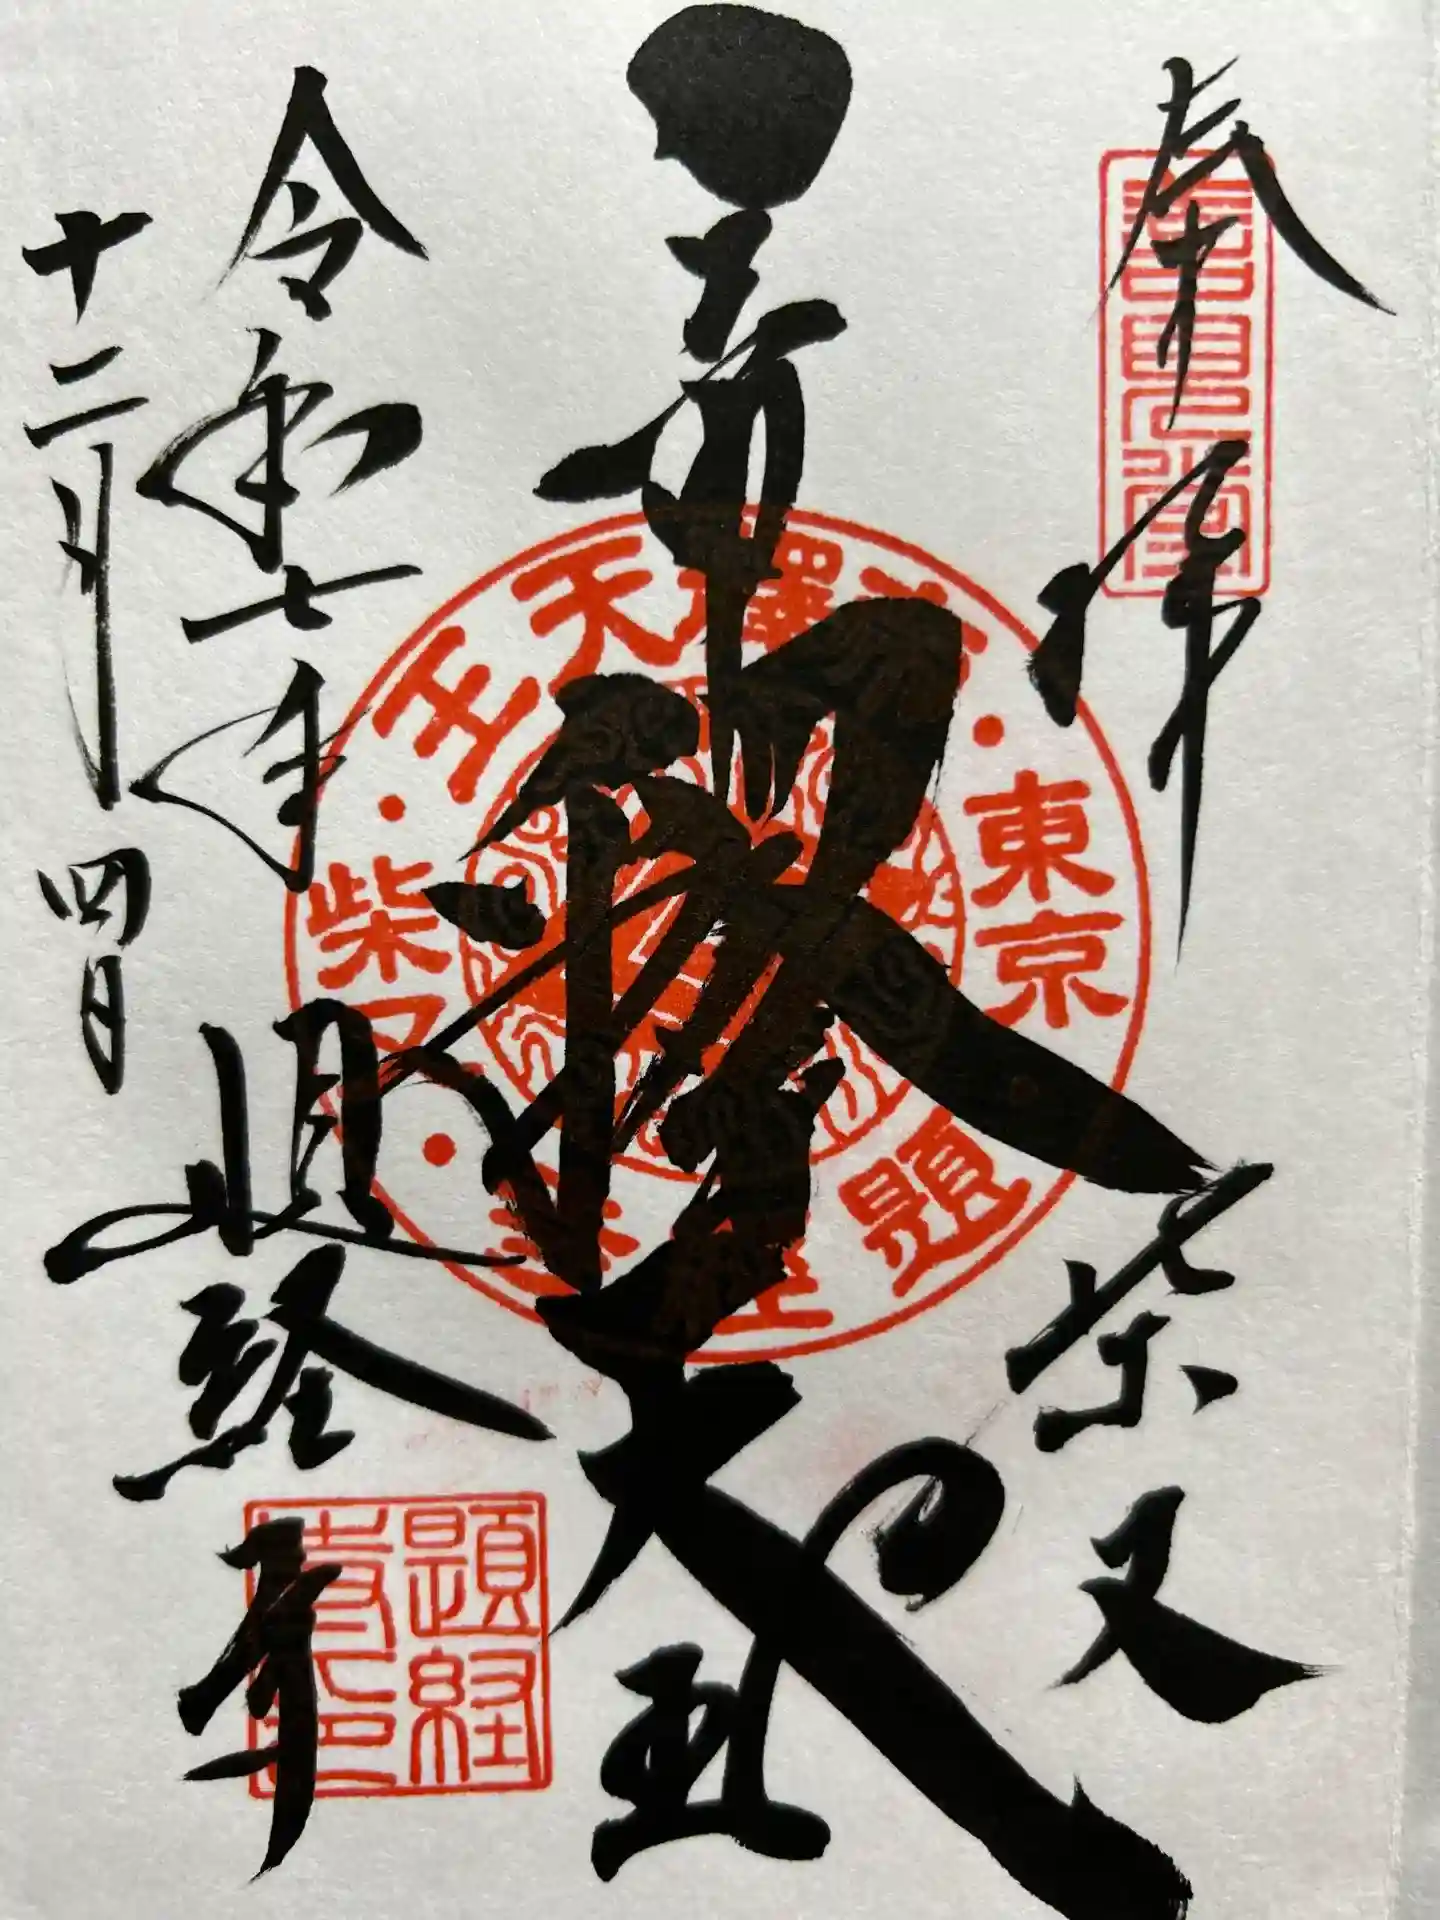 奉拝
柴又
帝釈天王
令和七年
十二月四日
題経寺
帝釋天王
東京
柴又
題経寺
題経
寺印